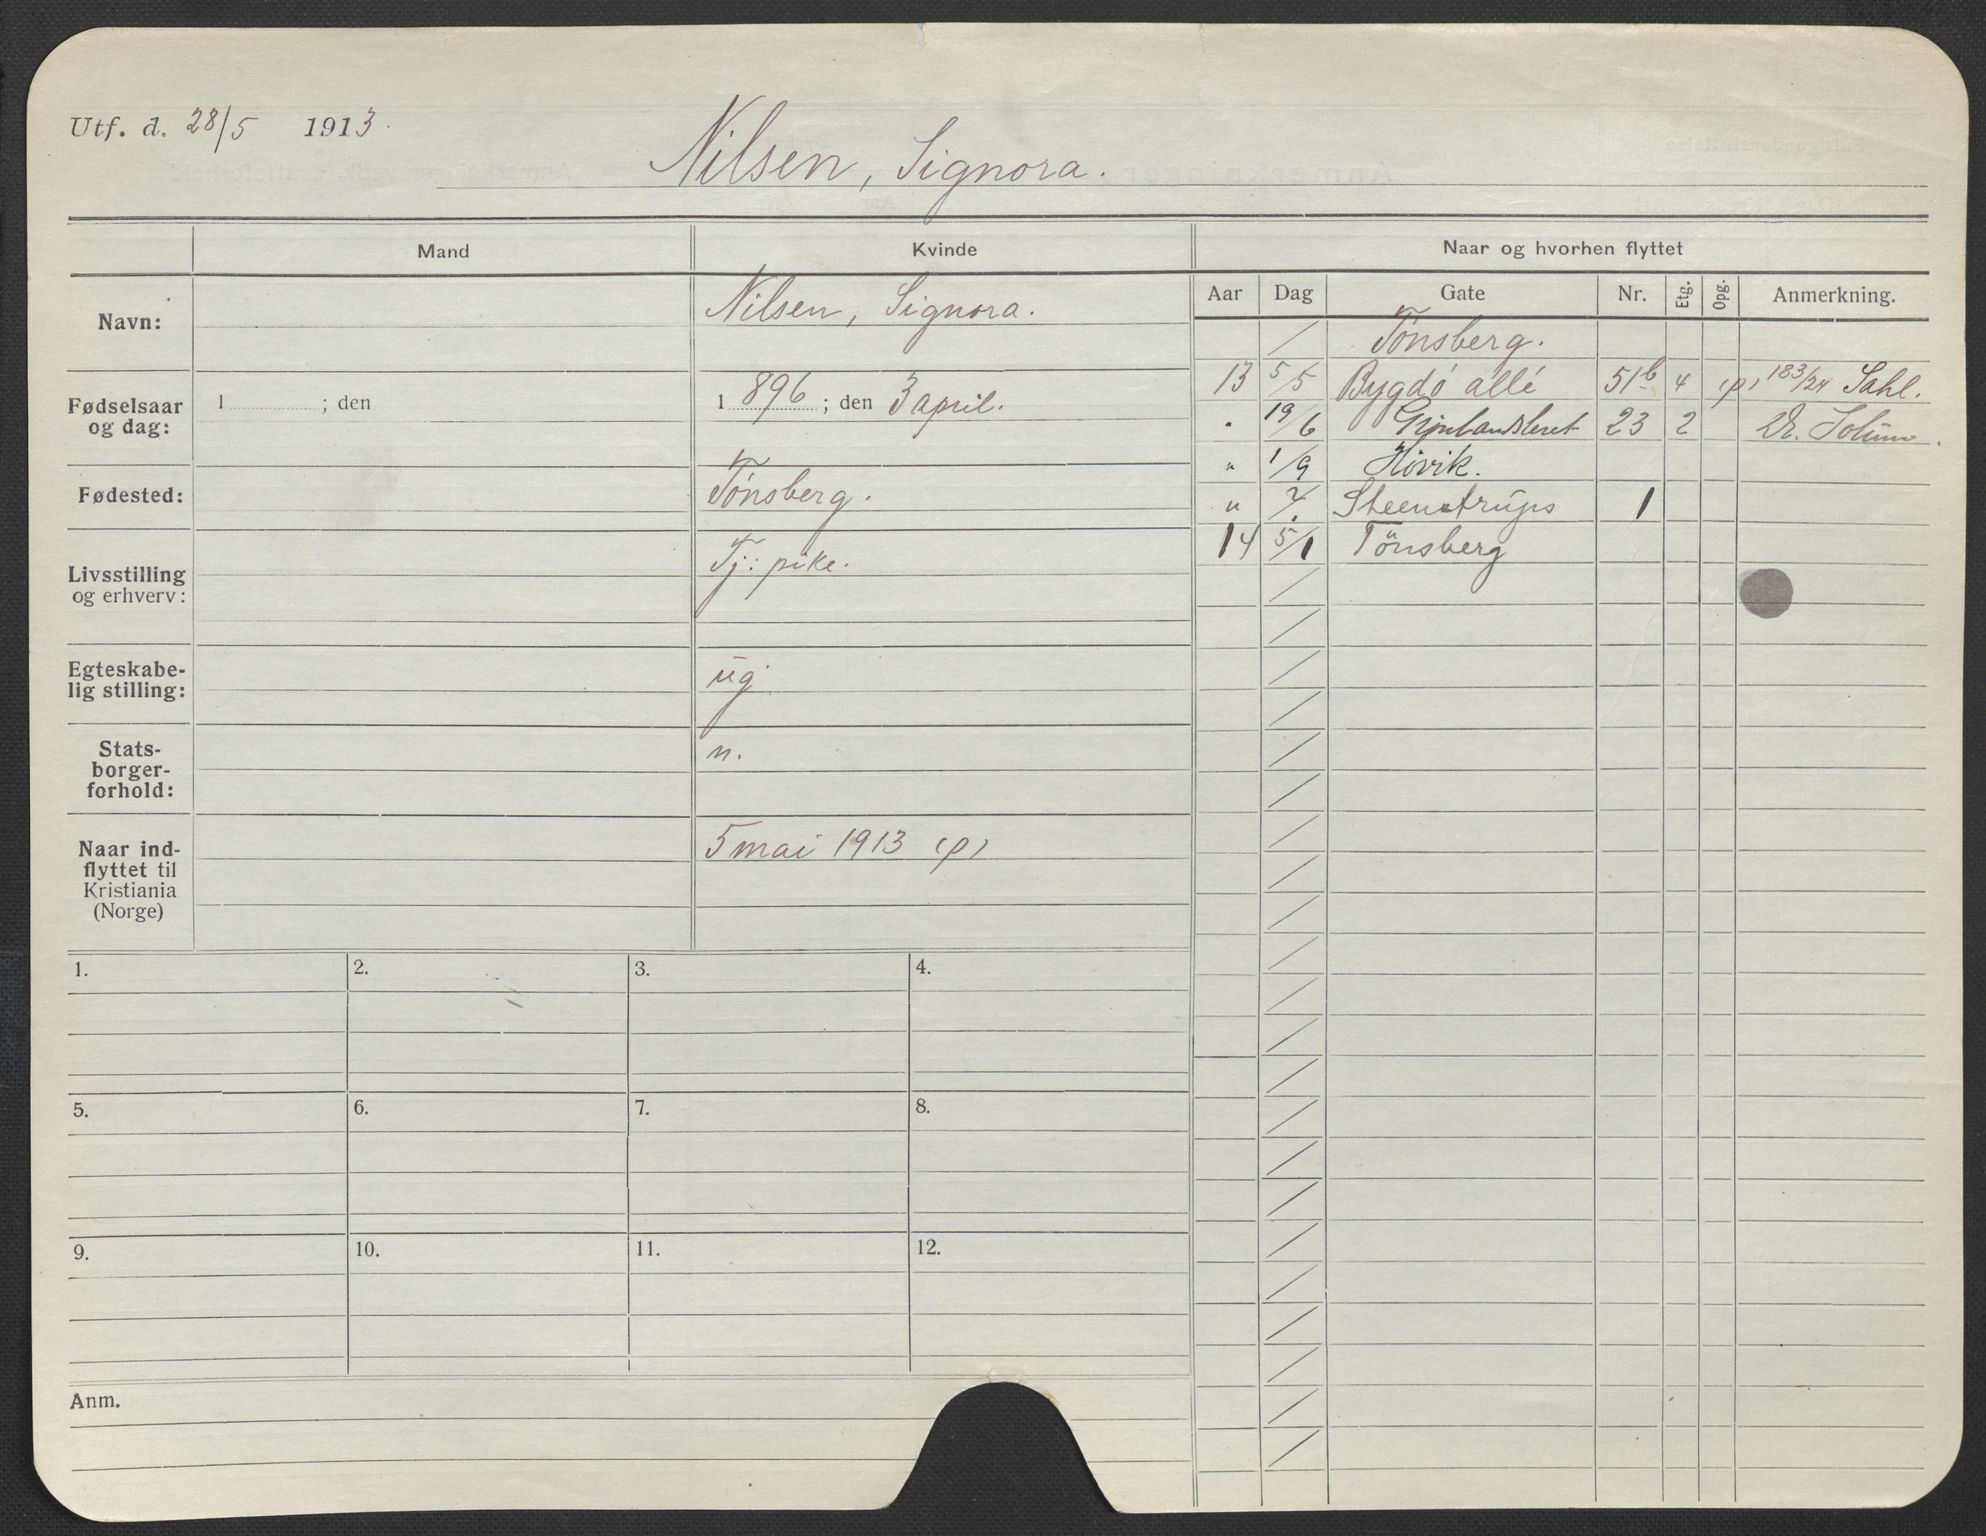 Utf. d. 28/5 1913.
Nilsen, Signora.
Mand
Kvinde
Naar og hvorhen flyttet
Aar Dag Gate Nr. Etg. Opg. Anmerkning.
Navn: Nilsen, Signora.
Fødselsaar og dag: 1 ; den 1896; den 3 april.
Fødested: Tönsberg.
Livsstilling og erhverv: Tj: pike.
Egteskabe-
lig stilling: ug
Stats-
borger-
forhold: n.
Naar ind-
flyttet til
Kristiania
(Norge) 5 mai 1913 (p)
/ Tönsberg.
13 5/5 Bygdö allé 51b 4 (p) 183/24 Sahl.
" 19/6 Grönlandsleret 23 2
" 1/9 Hövik.
" ?/. Steenstrups 1
14 5/1 Tönsberg
1. 2. 3. 4.
5. 6. 7. 8.
9. 10. 11. 12.
Anm.